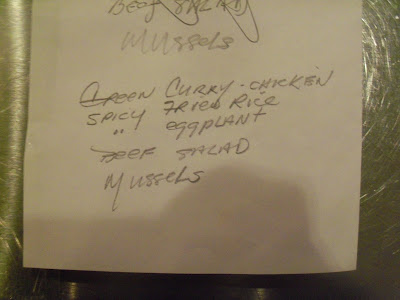 BEEF SALAD
MUSSELS
GREEN CURRY - CHICKEN
SPICY FRIED RICE
" EGGPLANT
BEEF SALAD
MUSSELS